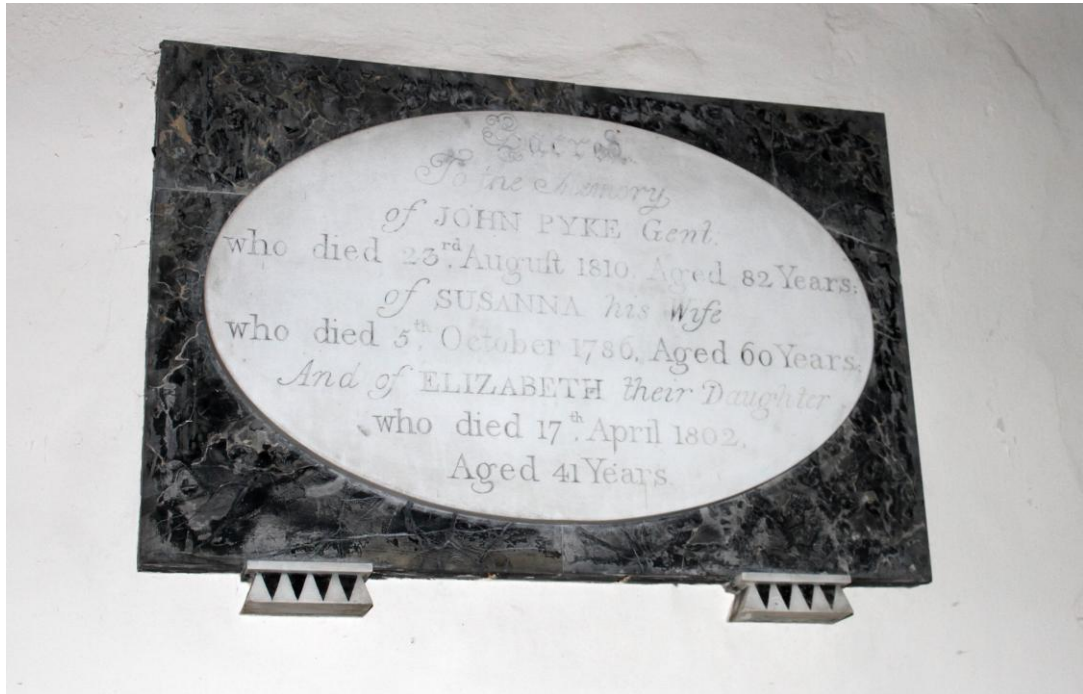 Sacred
To the Memory
of JOHN PYKE Gent.
who died 23.rd Auguſt 1810. Aged 82 Years;
of SUSANNA his Wife
who died 5.th October 1786, Aged 60 Years;
And of ELIZABETH their Daughter
who died 17.th April 1802,
Aged 41 Years.